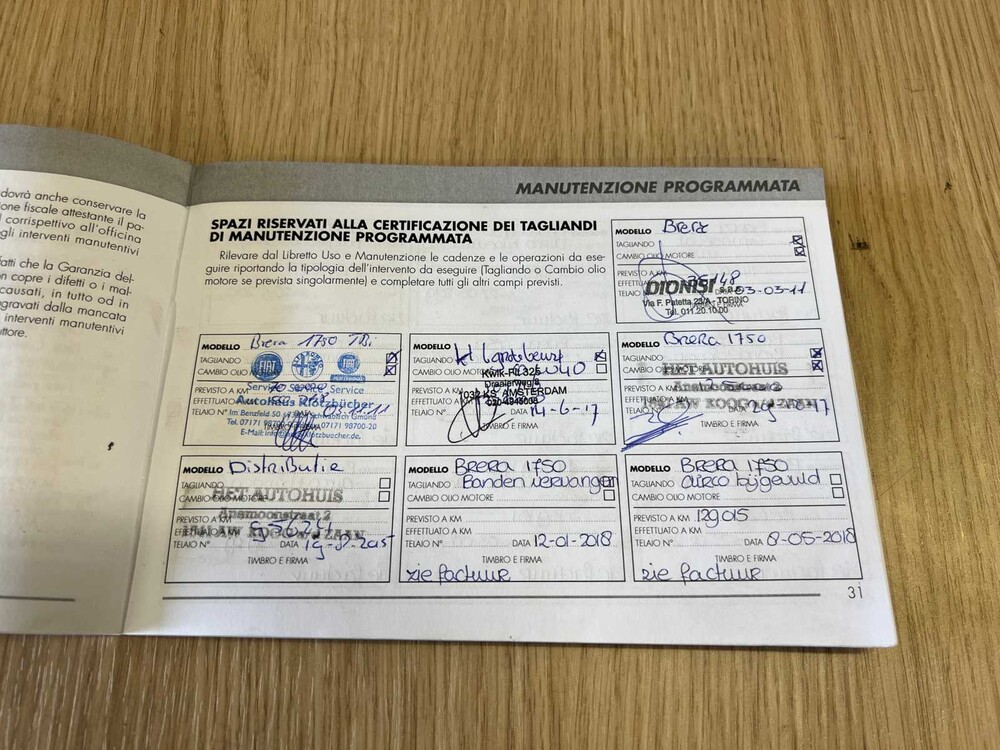 dovrà anche conservare la
one fiscale attestante il pa-
l corrispettivo all'officina
gli interventi manutentivi
fatti che la Garanzia del-
on copre i difetti o i mal-
causati, in tutto od in
gravati dalla mancata
interventi manutentivi
ttore.
MANUTENZIONE PROGRAMMATA
SPAZI RISERVATI ALLA CERTIFICAZIONE DEI TAGLIANDI
DI MANUTENZIONE PROGRAMMATA
Rilevare dal Libretto Uso e Manutenzione le cadenze e le operazioni da ese-
guire riportando la tipologia dell'intervento da eseguire (Tagliando o Cambio olio
motore se prevista singolarmente) e completare tutti gli altri campi previsti.
MODELLO Brera
TAGLIANDO
CAMBIO OLIO MOTORE
PREVISTO A KM
DIONISI
DATA 03-03-11
TELAIO
Via F. Patetta 23/A - TORINO
Tel. 011.20.10.00
MODELLO Brera 1750 TBi
TAGLIANDO
CAMBIO OLIO
FIAT
FIAT
Service Service Service
PREVISTO A KM
Autohaus Klotzbücher
TELAIO N°
Im Benzfeld 50
Tel. 07171 98700-0 07171 98700-20
E-Mail:
MODELLO
TAGLIANDO
CAMBIO OLIO MOTORE
Kwik-Fit 325
Draaierweg
PREVISTO A KM
1032 KS AMSTERDAM
EFFETTUATO A KM
TELAIO N° DATA 14-6-17
TIMBRO E FIRMA
MODELLO Brera 1750
TAGLIANDO
CAMBIO OLIO MOTORE
HET AUTOHUIS
PREVISTO A KM
Anemoonstraat 2
EFFETTUATO
KOOG A/D ZAAN
TELAIO N° DATA
TIMBRO E FIRMA
MODELLO Distributie
TAGLIANDO
CAMBIO OLIO MOTORE
HET AUTOHUIS
Anemoonstraat 2
PREVISTO A KM
KOOG A/D ZAAN
TELAIO N° DATA
TIMBRO E FIRMA
MODELLO Brera 1750
TAGLIANDO Banden vervangen
CAMBIO OLIO MOTORE
PREVISTO A KM
EFFETTUATO A KM
TELAIO N° DATA 12-01-2018
TIMBRO E FIRMA
zie factuur
MODELLO Brera 1750
TAGLIANDO airco bijgevuld
CAMBIO OLIO MOTORE
PREVISTO A KM 129015
EFFETTUATO A KM
TELAIO N° DATA 8-05-2018
TIMBRO E FIRMA
zie factuur
31